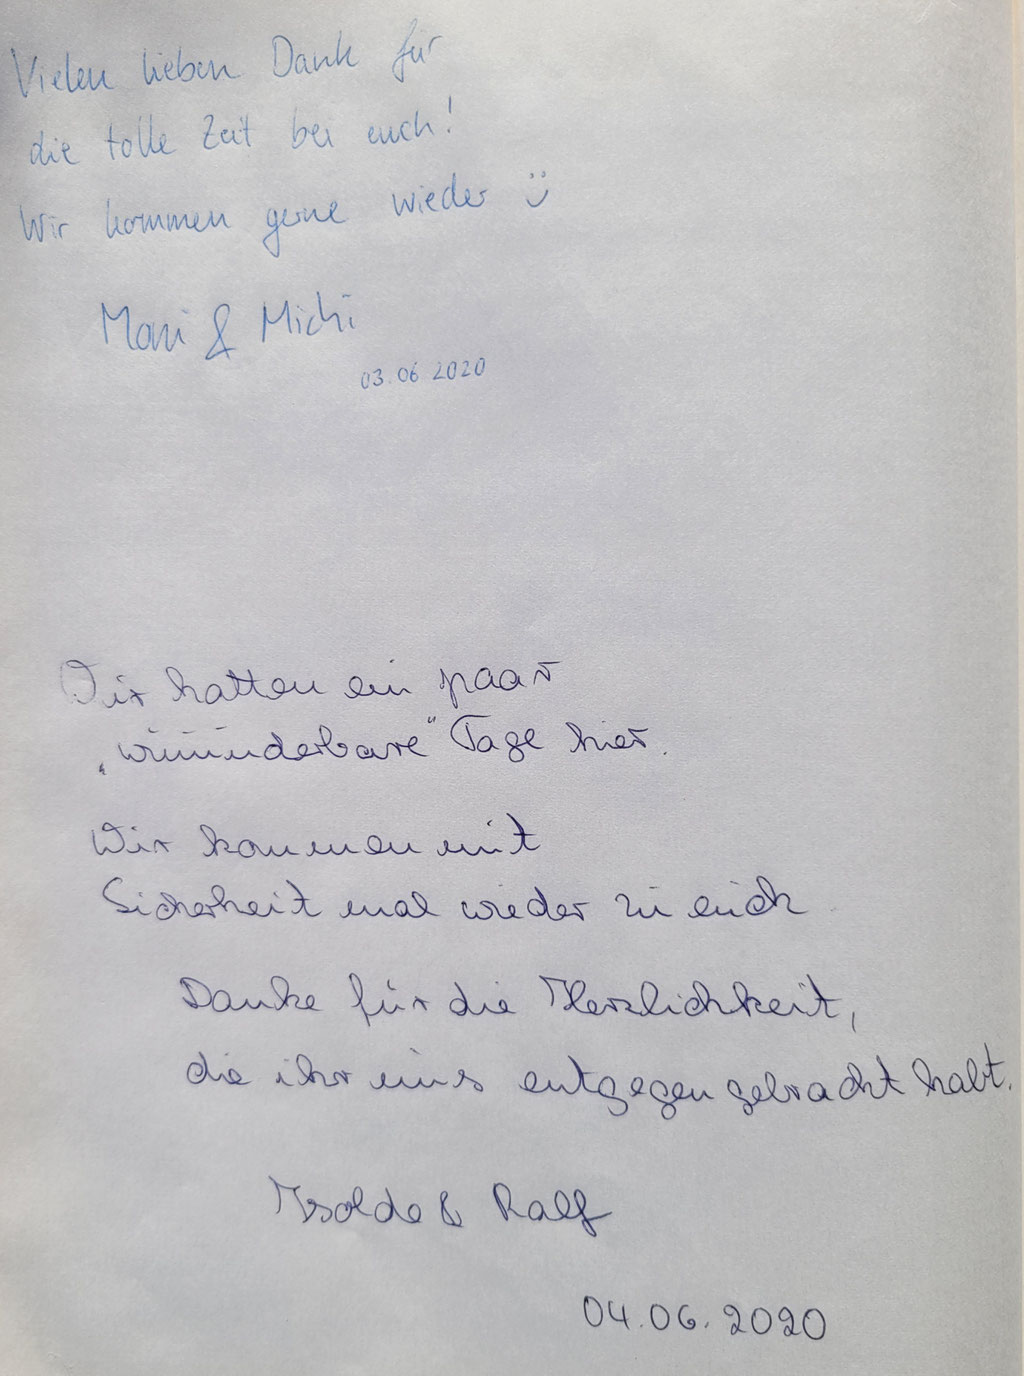 Vielen lieben Dank für
die tolle Zeit bei euch!
Wir kommen gerne wieder ☺
Moni & Michi
03.06 2020
Wir hatten ein paar
„wuuunderbare“ Tage hier.
Wir kommen mit
Sicherheit mal wieder zu euch
Danke für die Herzlichkeit,
die ihr uns entgegen gebracht habt.
Isolde & Ralf
04.06.2020